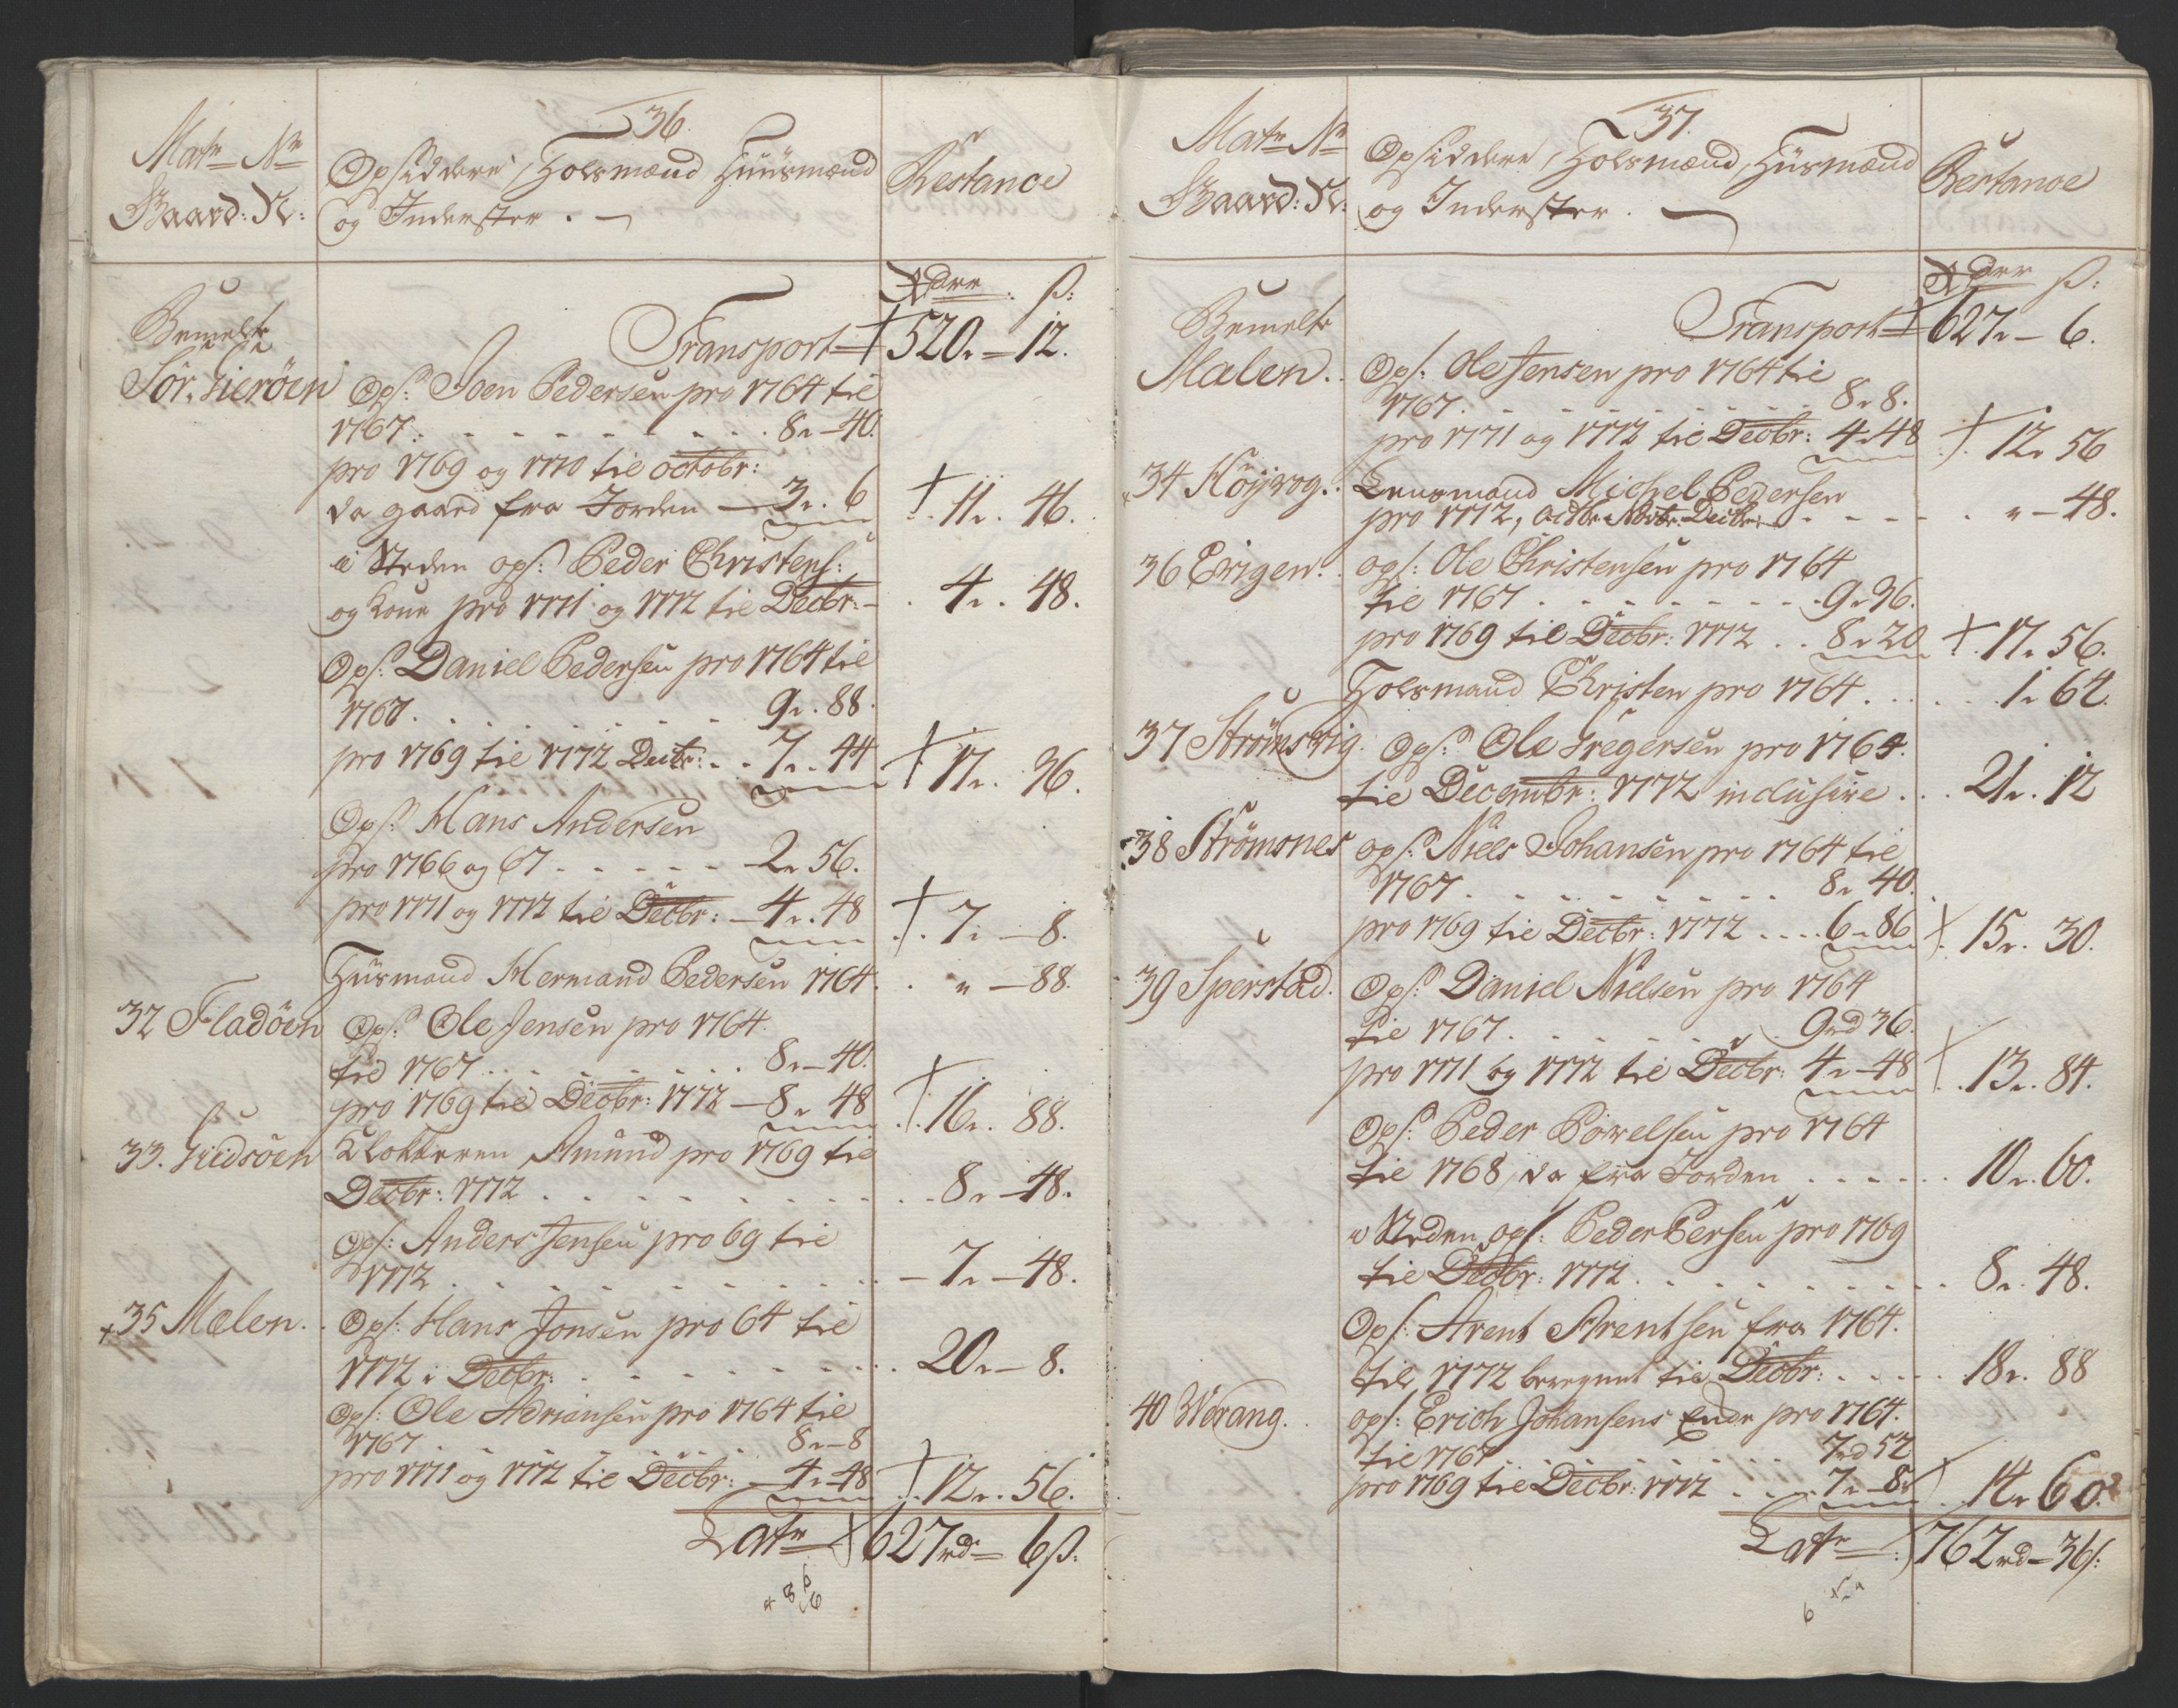 36.
Matr Nr
Gaard: N:
Opsiddere, Holsmænd Huusmænd
og Inderster. —
Restance
Rdlr . ß:
Bemelte
Transport 520. – 12.
Sör. Gieröen
Ops: Joen Pedersen pro 1764 til
1767. . . . . . . . . . 8 – 40.
pro 1769 og 1770 til octobr:
da gaaed fra Jorden – 3. 6 11. 46.
i Steden ops: Peder Christens:
og Kone pro 1771 og 1772 til Decbr: – 4. 48.
Ops: Daniel Pedersen pro 1764 til
1767. . . . . . . . . 9. 88.
pro 1769 til 1772 Decbr: . . 7. 44 17. 36.
Ops: Hans Andersen
pro 1766 og 67 . . . . . – 2 56.
pro 1771 og 1772 til Decbr: – 4. 48 7 – 8.
Huusmand Hermand Pedersen 1764. . " – 88.
32 Fladöen Ops: Ole Jensen pro 1764.
til 1767 . . . . . . . . 8 – 40.
pro 1769 til Decbr: 1772 – 8 48 16. 88.
33. Giedsöen Klokkeren Amund pro 1769 til
Decbr: 1772 . . . . . . . . . . . 8 – 48.
Ops: Anders Jensen pro 69 til
1772 . . . . . . . . . . . . – 7 – 48.
35 Mælen. Ops: Hans Jonsen pro 64 til
1772 i Decbr: . . . . . . . . . . 20 – 8.
Ops: Ole Adriansen pro 1764 til
1767 . . . . . . . . . 8 – 8
pro 1771 og 1772 til Decbr: – 4 – 48 12. 56.
Latr 627 rd – 6 ß:
37.
Matr Nr
Gaard: N:
Opsiddere, Holsmænd, Huusmænd
og Inderster. —
Restance
Rdlr ß:
Bemelte
Transport 627 – 6.
Malen. Ops: Ole Jensen pro 1764 til
1767. . . . . . . . . . 8 8.
pro 1771 og 1772 til Decbr: 4 48 12. 56
34 Höyvog. Lensmand Michel Pedersen
pro 1772, octbr Novbr Decbr, . . . . . . " – 48.
36 Evigen. ops: Ole Christensen pro 1764
til 1767 . . . . . . . . . 9 36.
pro 1769 til Decbr: 1772 . . 8 20 17. 56.
Holsmand Christen pro 1764 . . . . . . 1 64.
37 Strömsvig. Ops: Ole Gregersen pro 1764.
til Decembr: 1772 inclusive . . . 21. 12
38 Strömsnes ops: Niels Johansen pro 1764 til
1767 . . . . . . . . . . 8 40.
pro 1769 til Decbr: 1772 . . . . 6 – 86 15. 30.
39 Sperstad. Ops: Daniel Nielsen pro 1764
til 1767. . . . . . . . 9 rd 36.
pro 1771 og 1772 til Decbr: 4 – 48 13. 84.
Ops: Peder Powelsen pro 1764
til 1768, da fra Jorden . . . . . . 10. 60.
i Steden ops: Peder Persen pro 1769
til Decbr: 1772. . . . . . . . . . 8. 48.
Ops: Arent Arentsen fra 1764.
til 1772 beregnet til Decbr: . . . . . 18. 88
40 Werang. ops: Erich Johansens Enke pro 1764.
til 1767 . . . . . . . . . 7 rd 52
pro 1769 til Decbr: 1772 . . . . 7 – 8 14 60.
Latr 762 rd – 36 ß: